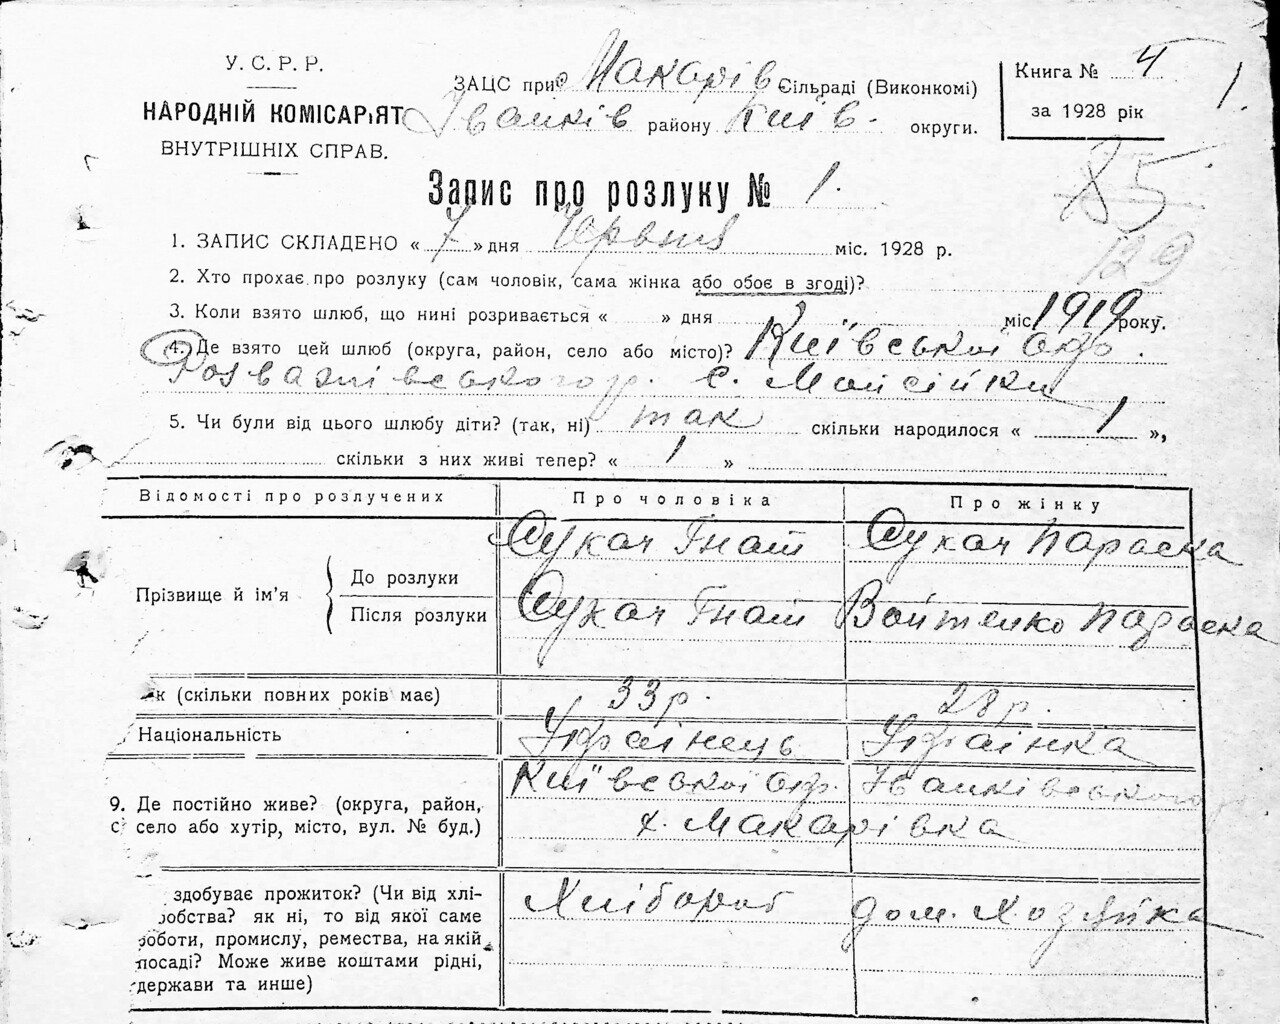 У. С. Р. Р.
НАРОДНІЙ КОМІСАРІЯТ
ВНУТРІШНІХ СПРАВ.
ЗАЦС при Макарів Сільраді (Виконкомі)
Іванків району Київ. округи.
Книга № 4
за 1928 рік
1.
85
129
Запис про розлуку № 1.
1. ЗАПИС СКЛАДЕНО « 7 » дня Червня міс. 1928 р.
2. Хто прохає про розлуку (сам чоловік, сама жінка або обоє в згоді)?
3. Коли взято шлюб, що нині розривається « » дня міс 1919 року.
4. Де взято цей шлюб (округа, район, село або місто)? Київської окр.
Розважівського р. с. Мойсійки
5. Чи були від цього шлюбу діти? (так, ні) так скільки народилося « 1 »,
скільки з них живі тепер? « 1 »
Відомості про розлучених Про чоловіка Про жінку
Прізвище й ім'я До розлуки Сукач Гнат Сукач Параска
Після розлуки Сукач Гнат Войтенко Параска
к (скільки повних років має) 33 р. 28 р.
Національність Українець Українка
9. Де постійно живе? (округа, район, село або хутір, місто, вул. № буд.) Київської окр. Іванківського р
х. Макарівка
здобуває прожиток? (Чи від хлі-
робства? як ні, то від якої саме
роботи, промислу, ремества, на якій
посаді? Може живе коштами рідні,
держави та инше)
Хлібороб дом. Хозяйка